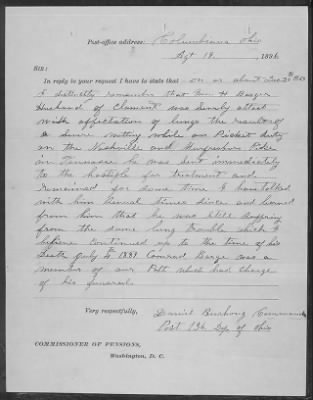 Post-office address: Columbiana Ohio
Agt 19, 1891.
SIR:
In reply to your request I have to state that on or about Dec 25th
I distinctly remember that H Barge
Husband of Claimant was Sevely attact
with affectation of lungs the results of
a Severe wetting while on Picket duty
on the Nashville and Pike
in Tennessee he was Sent immediately
to the hostiple for treatment and
remained for Some time I have talked
with him Several times Since and learned
from him that he was Still Suffering
from the same lung trouble which I
beleive Continued up to the time of his
Death July 1889 Conrad Barge was a
member of our Post which had Charge
of his funeral
Very respectfully,
Daniel Bushong Commander
Post 136 Dep of Ohio
COMMISSIONER OF PENSIONS,
Washington, D. C.